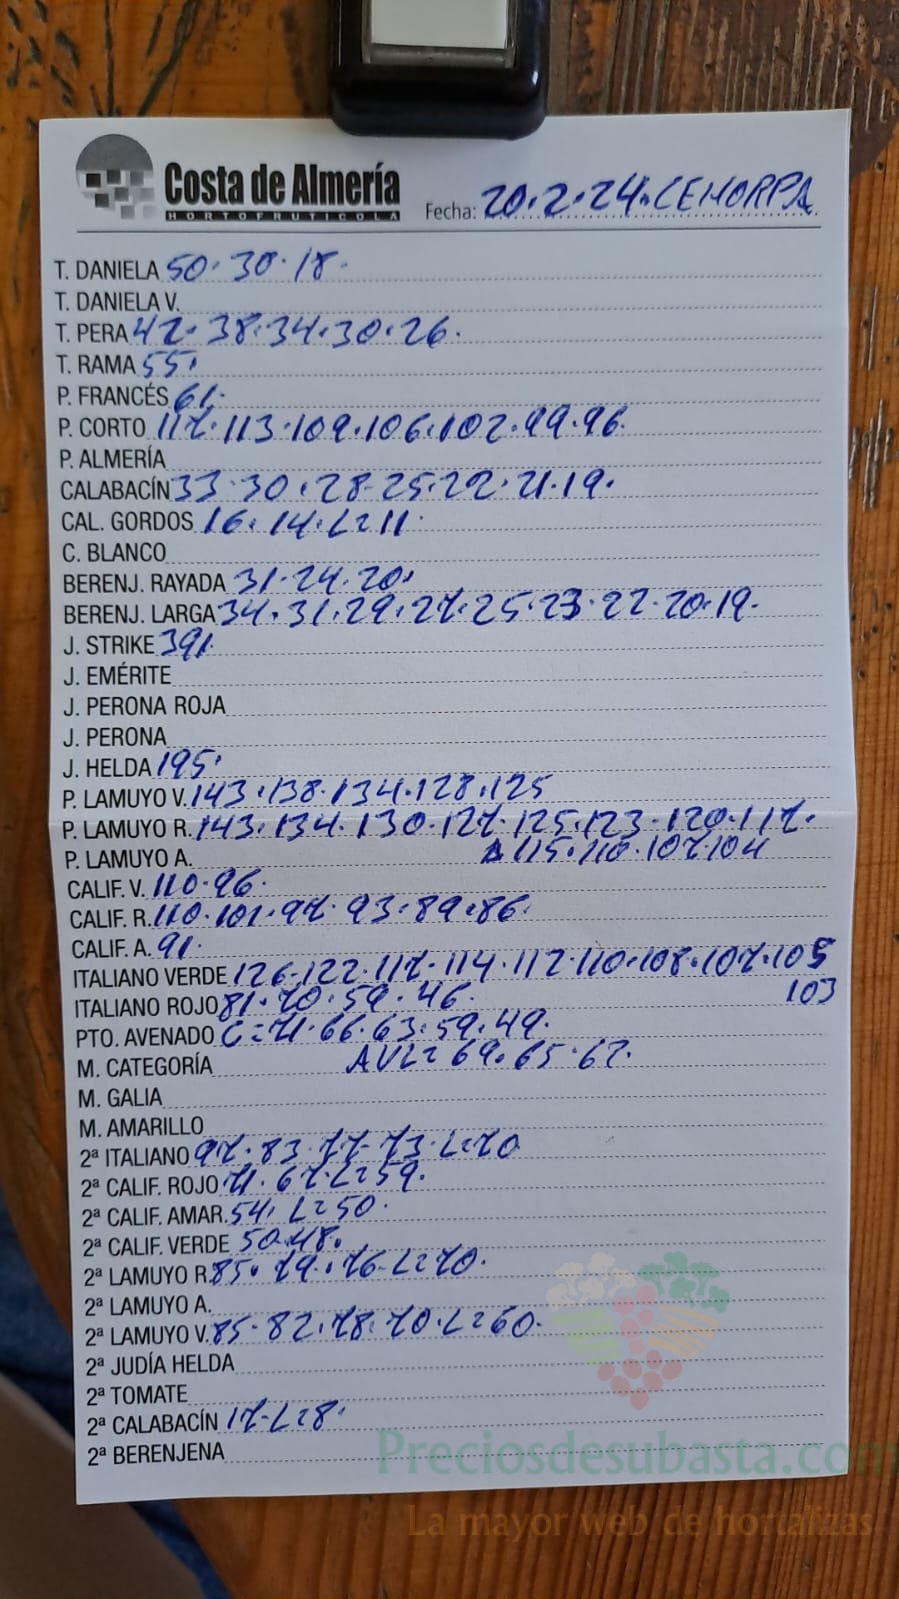 Costa de Almería
HORTOFRUTICOLA
Fecha: 20.2.24. CEHORPA
T. DANIELA 50. 30. 18.
T. DANIELA V.
T. PERA 42. 38. 34. 30. 26.
T. RAMA 55.
P. FRANCÉS 61.
P. CORTO 117. 113. 109. 106. 102. 99. 96.
P. ALMERÍA
CALABACÍN 33. 30. 28. 25. 22. 21. 19.
CAL. GORDOS 16. 14. L=11.
C. BLANCO
BERENJ. RAYADA 31. 24. 20.
BERENJ. LARGA 34. 31. 29. 27. 25. 23. 22. 20. 19.
J. STRIKE 391.
J. EMÉRITE
J. PERONA ROJA
J. PERONA
J. HELDA 195.
P. LAMUYO V. 143. 138. 134. 128. 125
P. LAMUYO R. 143. 134. 130. 127. 125. 123. 120. 117.
P. LAMUYO A. 115. 110. 107. 104
CALIF. V. 110. 96.
CALIF. R. 110. 101. 97. 93. 89. 86.
CALIF. A. 91.
ITALIANO VERDE 126. 122. 117. 114. 112. 110. 108. 107. 105
ITALIANO ROJO 81. 70. 59. 46. 103
PTO. AVENADO C=71. 66. 63. 59. 49.
M. CATEGORÍA AVL= 69. 65. 62.
M. GALIA
M. AMARILLO
2ª ITALIANO 97. 83. 77. 73. L=70
2ª CALIF. ROJO 71. 67. L=59.
2ª CALIF. AMAR. 54. L=50.
2ª CALIF. VERDE 50. 48.
2ª LAMUYO R. 85. 79. 76. L=70.
2ª LAMUYO A.
2ª LAMUYO V. 85. 82. 78. 70. L=60.
2ª JUDÍA HELDA
2ª TOMATE
2ª CALABACÍN 17. L=8.
2ª BERENJENA
Preciosdesubasta.com
La mayor web de hortalizas